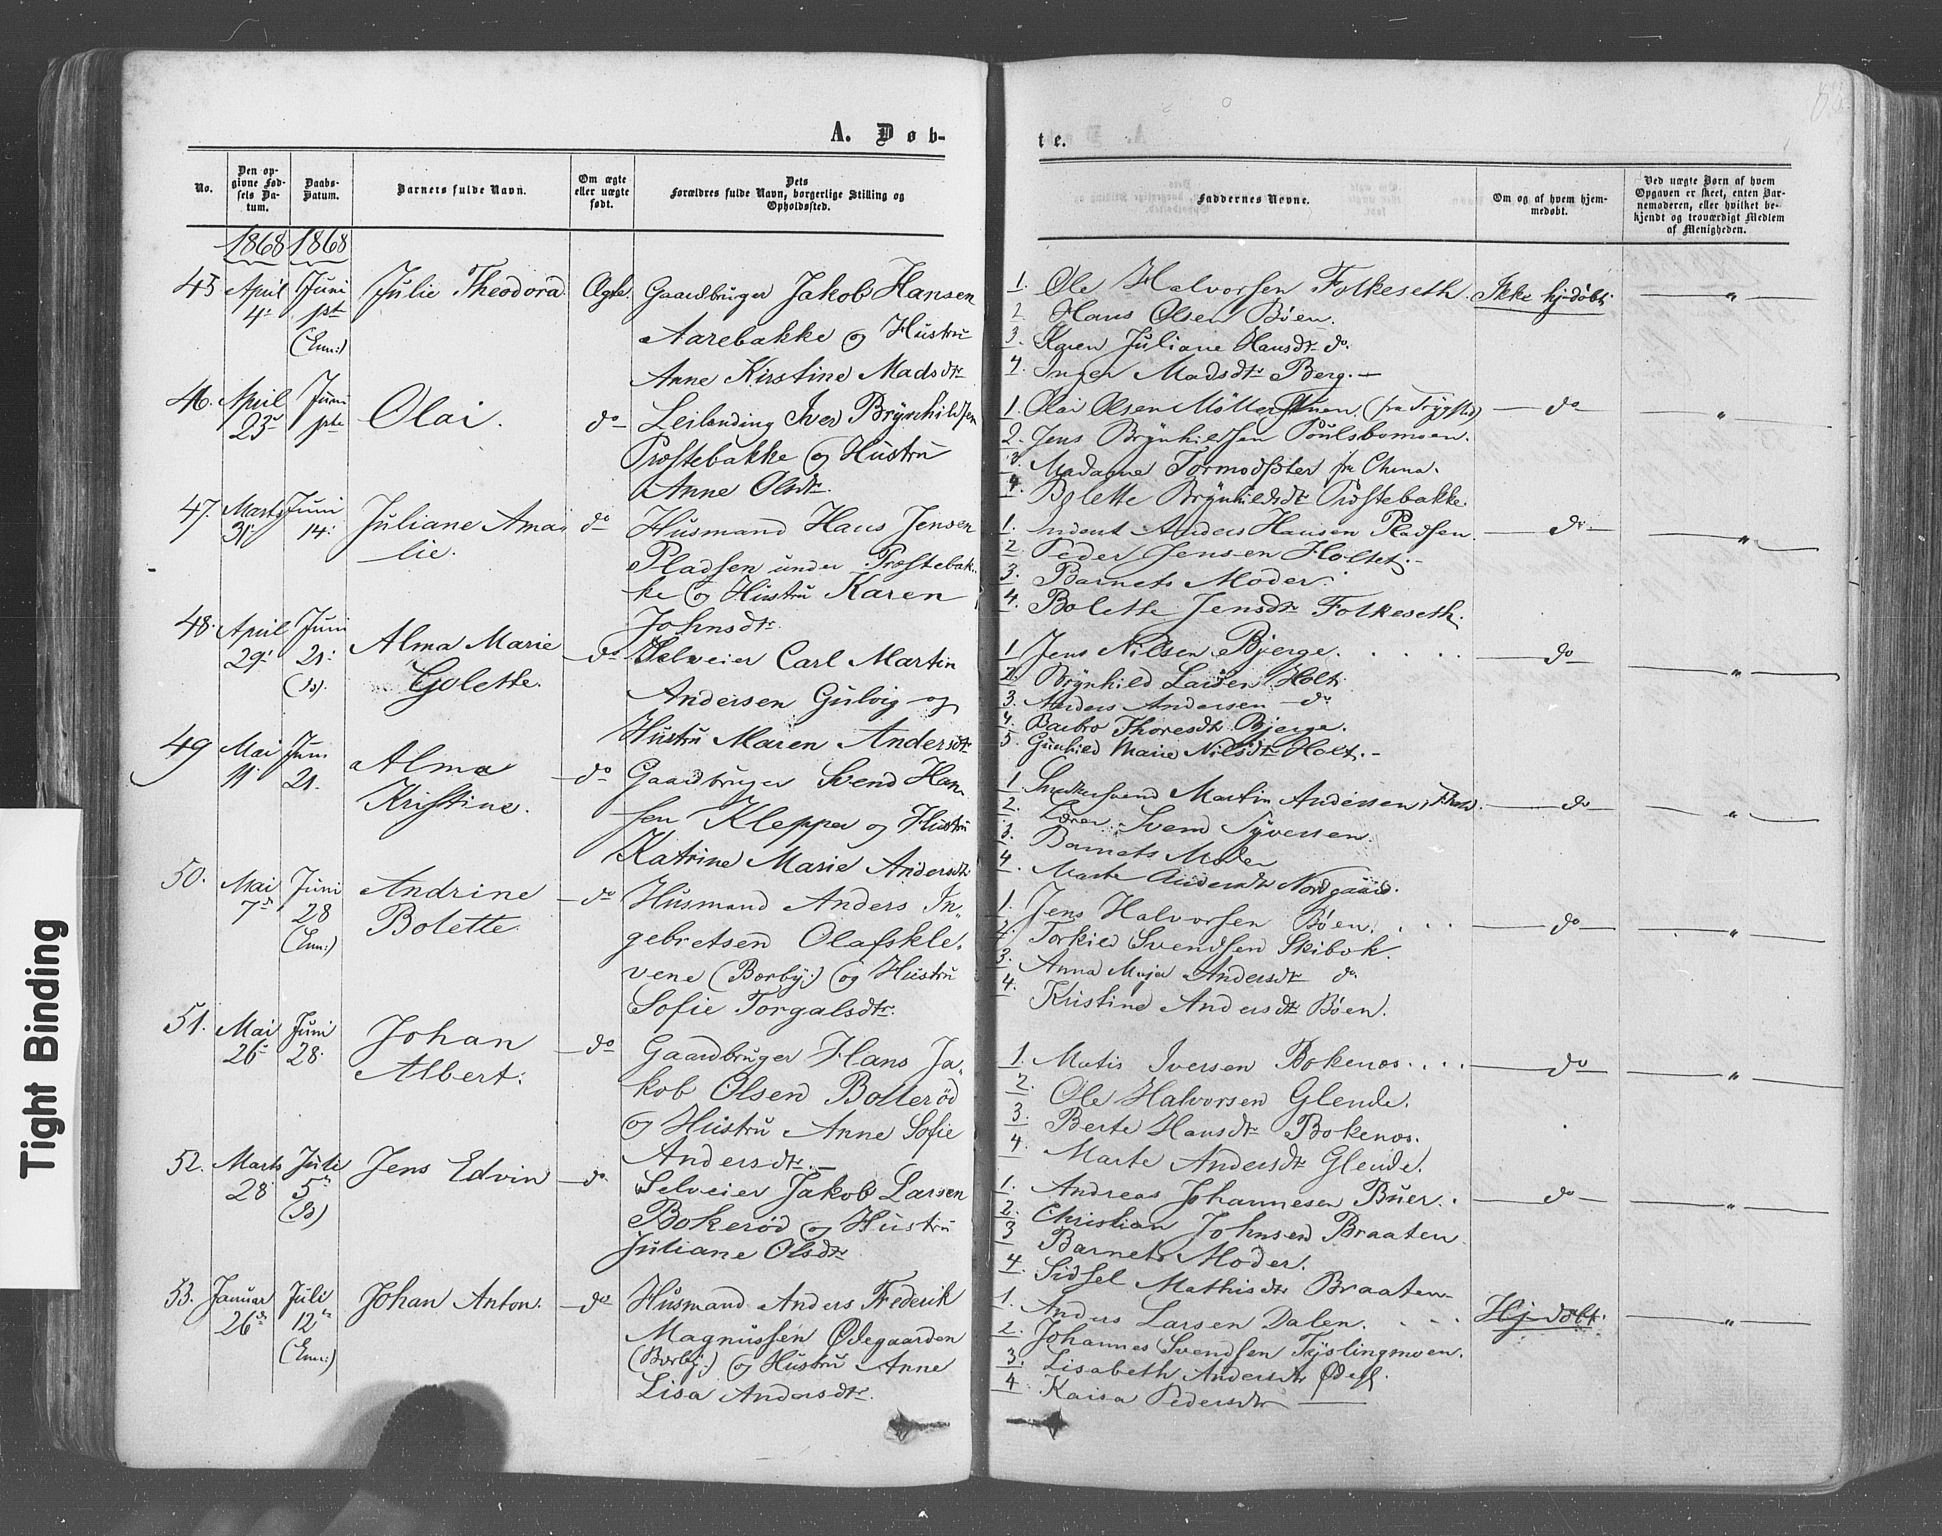 A. Døb-
te.
No.
Den op-
givne Fød-
sels Da-
tum.
Daabs-
Datum.
Barnets fulde Navn.
Om ægte
eller uægte
født.
Dets
Forældres fulde Navn, borgerlige Stilling og
Opholdssted.
Faddernes Navne.
Om og af hvem hjem-
medøbt.
Ved uægte Børn af hvem
Opgaven er skeet, enten Bar-
nemoderen, eller hvilket be-
kjendt og troværdigt Medlem
af Menigheden.
1868 1868
45 April 4. Juni 1ste (Enn:) Julie Theodora Ægte.
Gaardbruger Jakob Hansen
Aarebakke og Hustru
Anne Kirstine Madsdtr
1. Ole Halvorsen Folkeseth.
2 Hans Olsen Bøen.
3. Karen Juliane Hansdtr do.
4. Inger Madsdtr Berg. —
Ikke hj-døbt — " —
46. April 23 Juni 1ste Olai. do
Leilænding Iver Brynhildsen
Præstebakke og Hustru
Anne Olsdtr.
1. Olai Olsen
2. Jens Brynhildsen Poulsbomoen.
3. Madagne Tormodsdter fra China.
4. Bolette Brynhildsdtr Præstebakke.
— do — "
47. Marts 31 Juni 14. Juliane Ama-
lie. do
Husmand Hans Jensen
Pladsen under Præstebak-
ke og Hustru Karen
Johnsdtr.
1. Anders Hansen Pladsen.
2. Peder Jensen Holtet. -
3. Barnets Moder.
4. Bolette Jensdtr Folkeseth.
— do — — " —
48. April 29. Juni 21. (Is). Alma Marie
Golette. — do
Selveier Carl Martin
Andersen Gulvig og
Hustru Maren Andersdtr
1 Jens Nilsen Bjerge.
2. Brynhild Larsen Holt
3. Anders Andersen — do
4. Barbro Thoresdtr Bjerge.
5. Gunhild Marie Nilsdtr Holt. -
— do — — " —
49 Mai 11 Juni 21. Alma
Kristine. — do
Gaardbruger Svend Han-
sen Klepper og Hustru
Katrine Marie Andersdtr
1. Snedkersvend Martin Andersen, Fhald.
2. Lærer Svend Syversen.
3. Barnets Moder
4. Marte Andersdtr Nordgaard.
— do — — " —
50. Mai 7de Juni 28 (Enn:) Andrine
Bolette. — do
Husmand Anders In-
gebretsen Olafskle-
vene (Børby:) og Hustru
Sofie Torgalsdtr.
1. Jens Halvorsen Bøen.
2. Torkild Svendsen Skibok.
3. Anna Maja Andersdtr do.
4. Kristine Andersdtr Bøen.
— do — — " —
51. Mai 26 Juni 28. Johan
Albert. — do
Gaardbruger Hans Ja-
kob Olsen Bollerød
og Hustru Anne Sofie
Andersdtr. —
1. Matis Iversen Bokenæs.
2. Ole Halvorsen Glende.
3. Berte Hansdtr Bokenæs.
4. Marte Andersdtr Glende.
— do — — " —
52. Marts 28 Juli 5te (Is) Jens Edvin — do.
Selveier Jakob Larsen
Bokerød og Hustru
Juliane Olsdtr
1. Andreas Johannesen Buer.
2. Christian Johnsen Braaten.
3 Barnets Moder.
4. Sidsel Mathisdtr Braaten —
— do — — " —
53. Januar 26de Juli 12te (Enn:) Johan Anton. — do
Husmand Anders Frederik
Magnussen Ødegaarden
(Børby:) og Hustru Anne
Lisa Andersdtr.
1. Anders Larsen Dalen.
2. Johannes Svendsen Tyslingmoen.
3. Lisabeth Andersdtr
4 Kaisa Pedersdtr —
Hj-døbt. — " —
Tight Binding